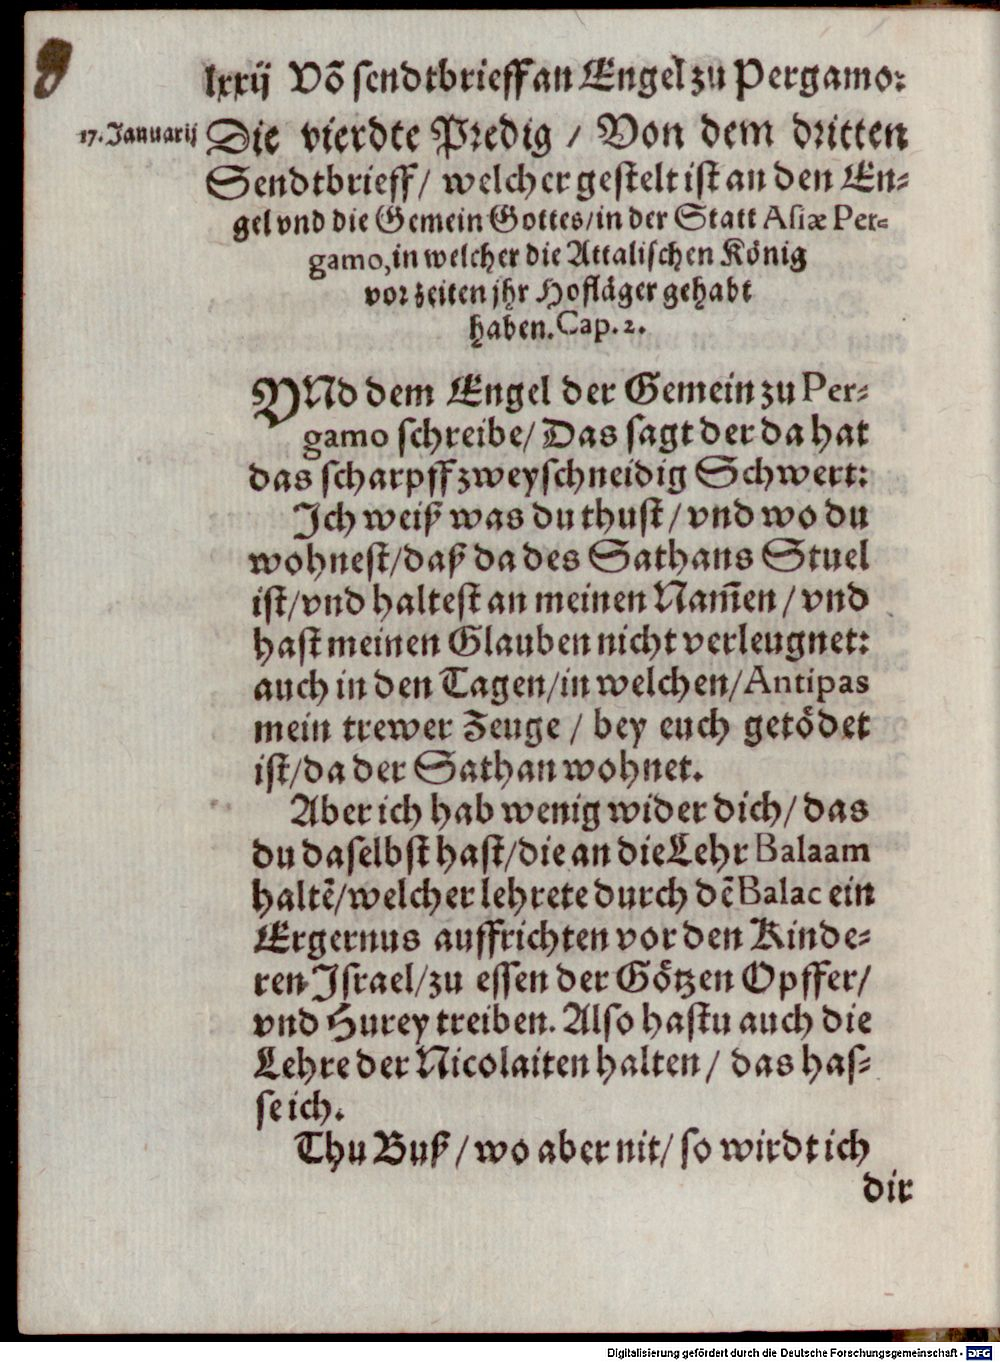 lxxij Võ sendtbrieff an Engel zu Pergamo:
17. Januarij
Die vierdte Predig / Von dem dritten
Sendtbrieff / welcher gestelt ist an den En-
gel vnd die Gemein Gottes / in der Statt Asiæ Per-
gamo, in welcher die Attalischen König
vor zeiten jhr Hofläger gehabt
haben. Cap. 2.
VNd dem Engel der Gemein zu Per-
gamo schreibe / Das sagt der da hat
das scharpff zweyschneidig Schwert:
Ich weiß was du thust / vnd wo du
wohnest / daß da des Sathans Stuel
ist / vnd haltest an meinen Nam̃en / vnd
hast meinen Glauben nicht verleugnet:
auch in den Tagen / in welchen / Antipas
mein trewer Zeuge / bey euch getödet
ist / da der Sathan wohnet.
Aber ich hab wenig wider dich / das
du daselbst hast / die an die Lehr Balaam
haltẽ / welcher lehrete durch dẽ Balac ein
Ergernus auffrichten vor den Kinde-
ren Israel / zu essen der Götzen Opffer /
vnd Hurey treiben. Also hastu auch die
Lehre der Nicolaiten halten / das has-
se ich.
Thu Buß / wo aber nit / so wirdt ich
dir
Digitalisierung gefördert durch die Deutsche Forschungsgemeinschaft - DFG